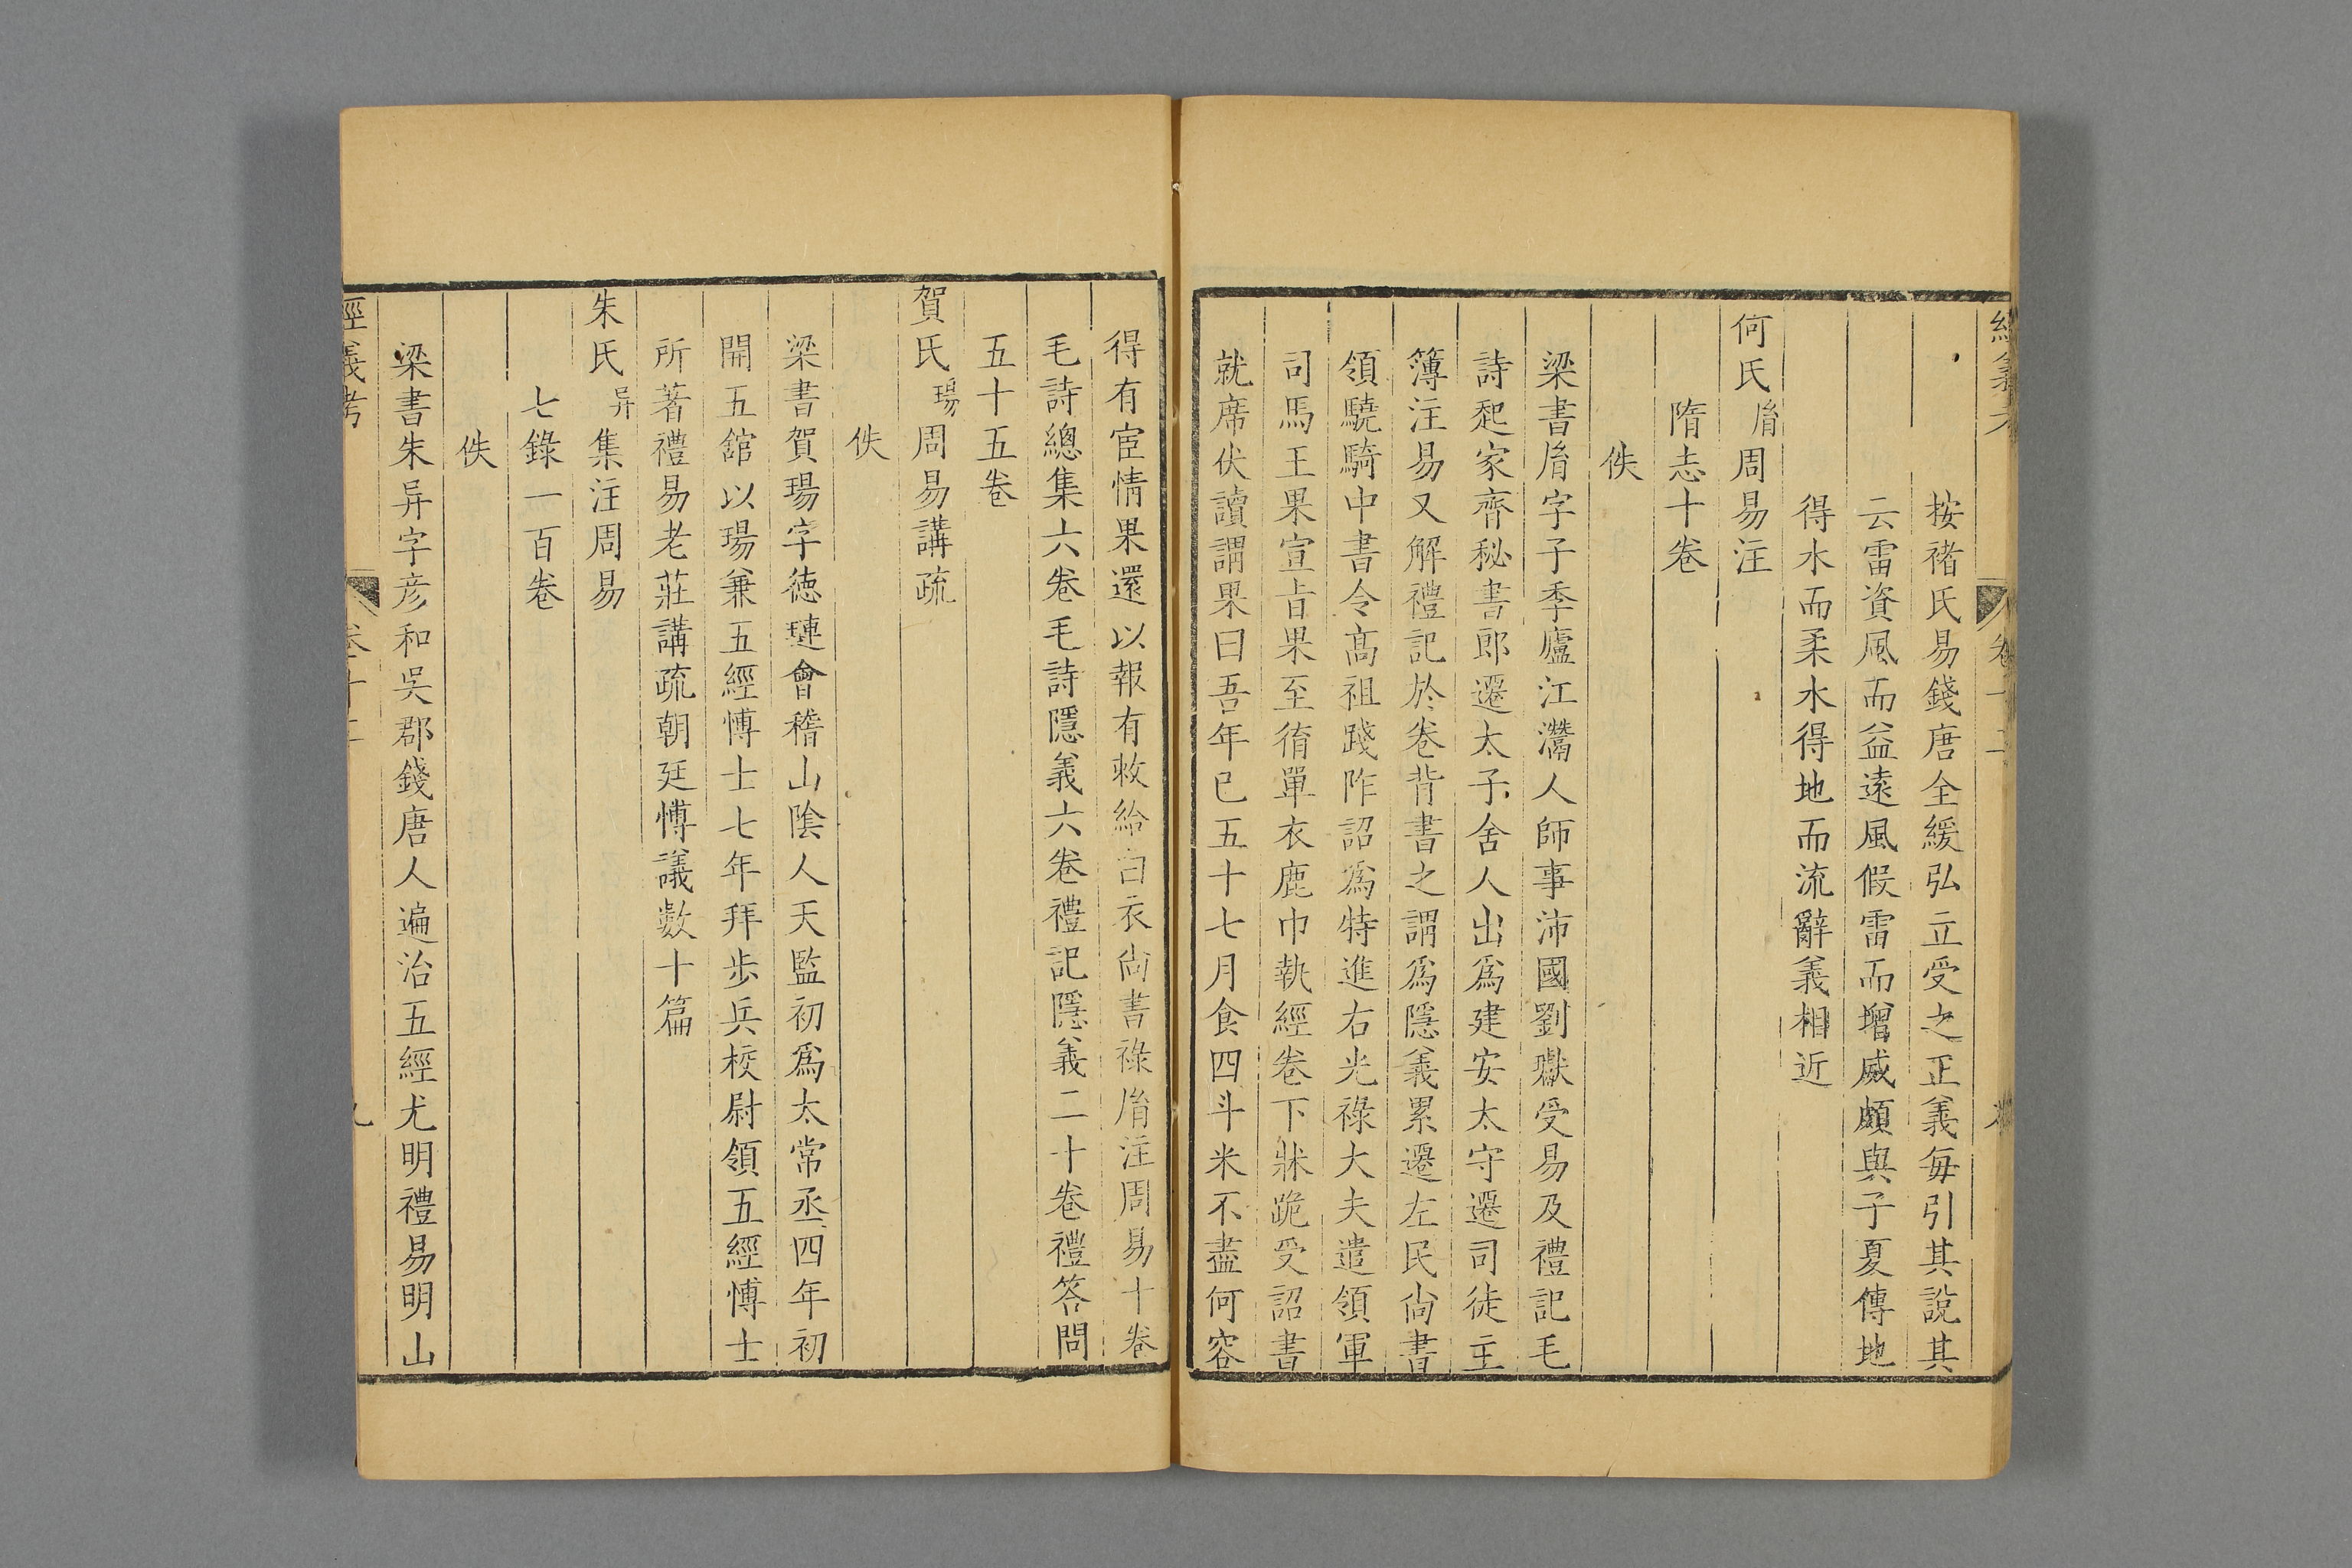 按褚氏易錢唐全緩弘立受之正義每引其說其
云雷資風而益遠風假雷而增威頗與子夏傳地
得水而柔水得地而流辭義相近
何氏胤周易注
隋志十卷
佚
梁書胤字子季廬江灊人師事沛國劉瓛受易及禮記毛
詩起家齊秘書郎遷太子舍人出為建安太守遷司徒主
簿注易又解禮記於卷背書之謂為隱義累遷左民尚書
領驍騎中書令高祖踐阼詔為特進右光祿大夫遣領軍
司馬王果宣旨果至徃單衣鹿巾執經卷下牀跪受詔書
就席伏讀謂果曰吾年已五十七月食四斗米不盡何容
得有宦情果還以報有敕給白衣尚書祿胤注周易十卷
毛詩總集六卷毛詩隱義六卷禮記隱義二十卷禮答問
五十五卷
賀氏瑒周易講疏
佚
梁書賀瑒字德璉會稽山陰人天監初為太常丞四年初
開五館以瑒兼五經博士七年拜步兵校尉領五經博士
所著禮易老莊講疏朝廷博議數十篇
朱氏异集注周易
七錄一百卷
佚
梁書朱异字彥和吳郡錢唐人遍治五經尤明禮易明山
經義考